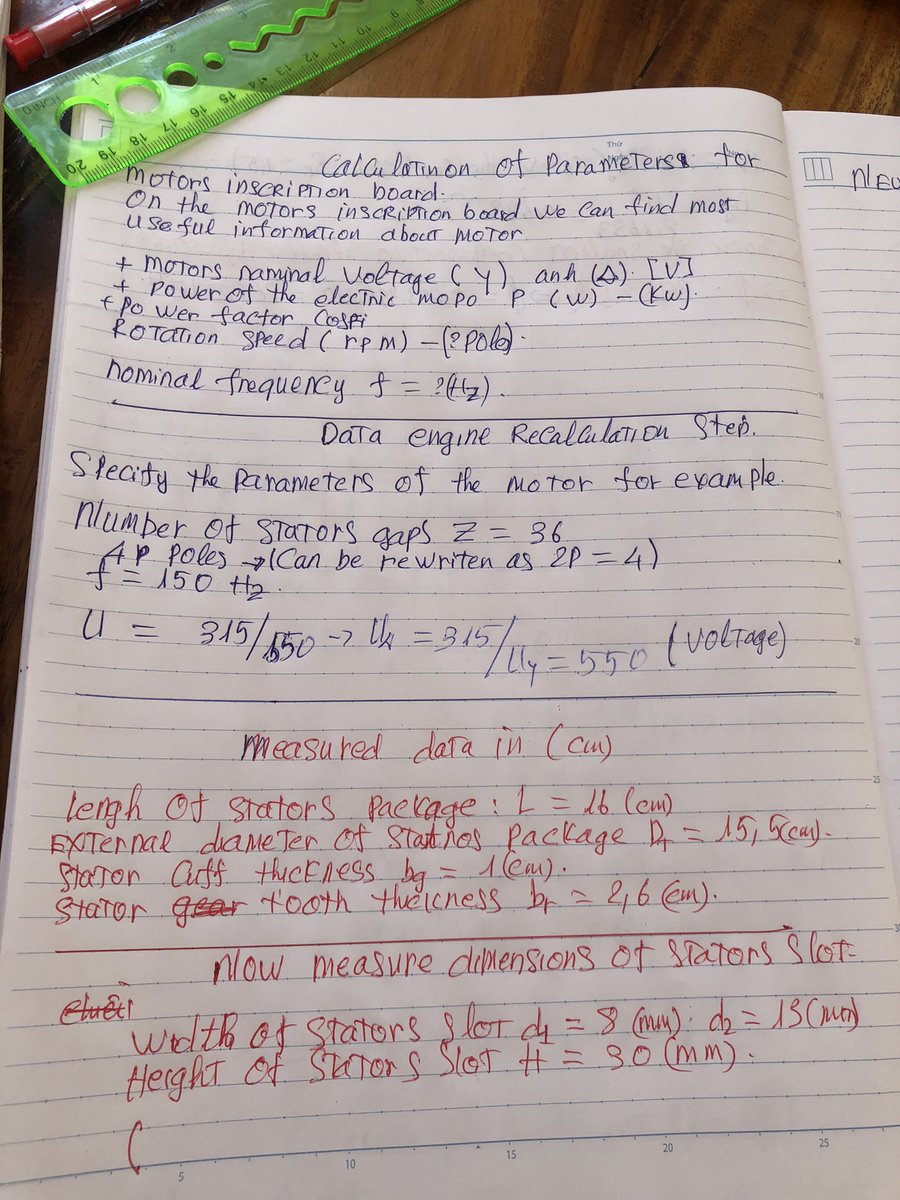 Calculatinon of Parameters for
motors inscription board.
On the motors inscription board we can find most
useful information about motor
+ motors naminal voltage (Y), anh (Δ). [V]
+ power of the electric mopo P (w) - (Kw).
+ power factor Cosfi
Rotation speed (rpm) - (?pole).
nominal frequency f = ?(Hz).
Data engine Recalculation Step.
Specify the parameters of the motor for example.
Number of stators gaps Z = 36
4P poles → (Can be rewriten as 2P = 4)
f = 150 Hz.
U = 315/550 → = 315/Uy = 550 (voltage)
measured data in (cm)
lengh of stators package : L = 16 (cm)
External diameter of package = 15,5(cm).
Stator Cuff thickness bg = 1(cm).
Stator gear tooth thickness = 2,6 (cm).
Now measure dimensions of stators slot-
Width of stators slot d1 = 8 (mm). d2 = 13(mm)
Height of stators slot H = 30 (mm).
(
5 10 15 20 25
Thứ
NEU
20 19 18 17 16 15 14 13 12 11 10 9 8
1 2 3